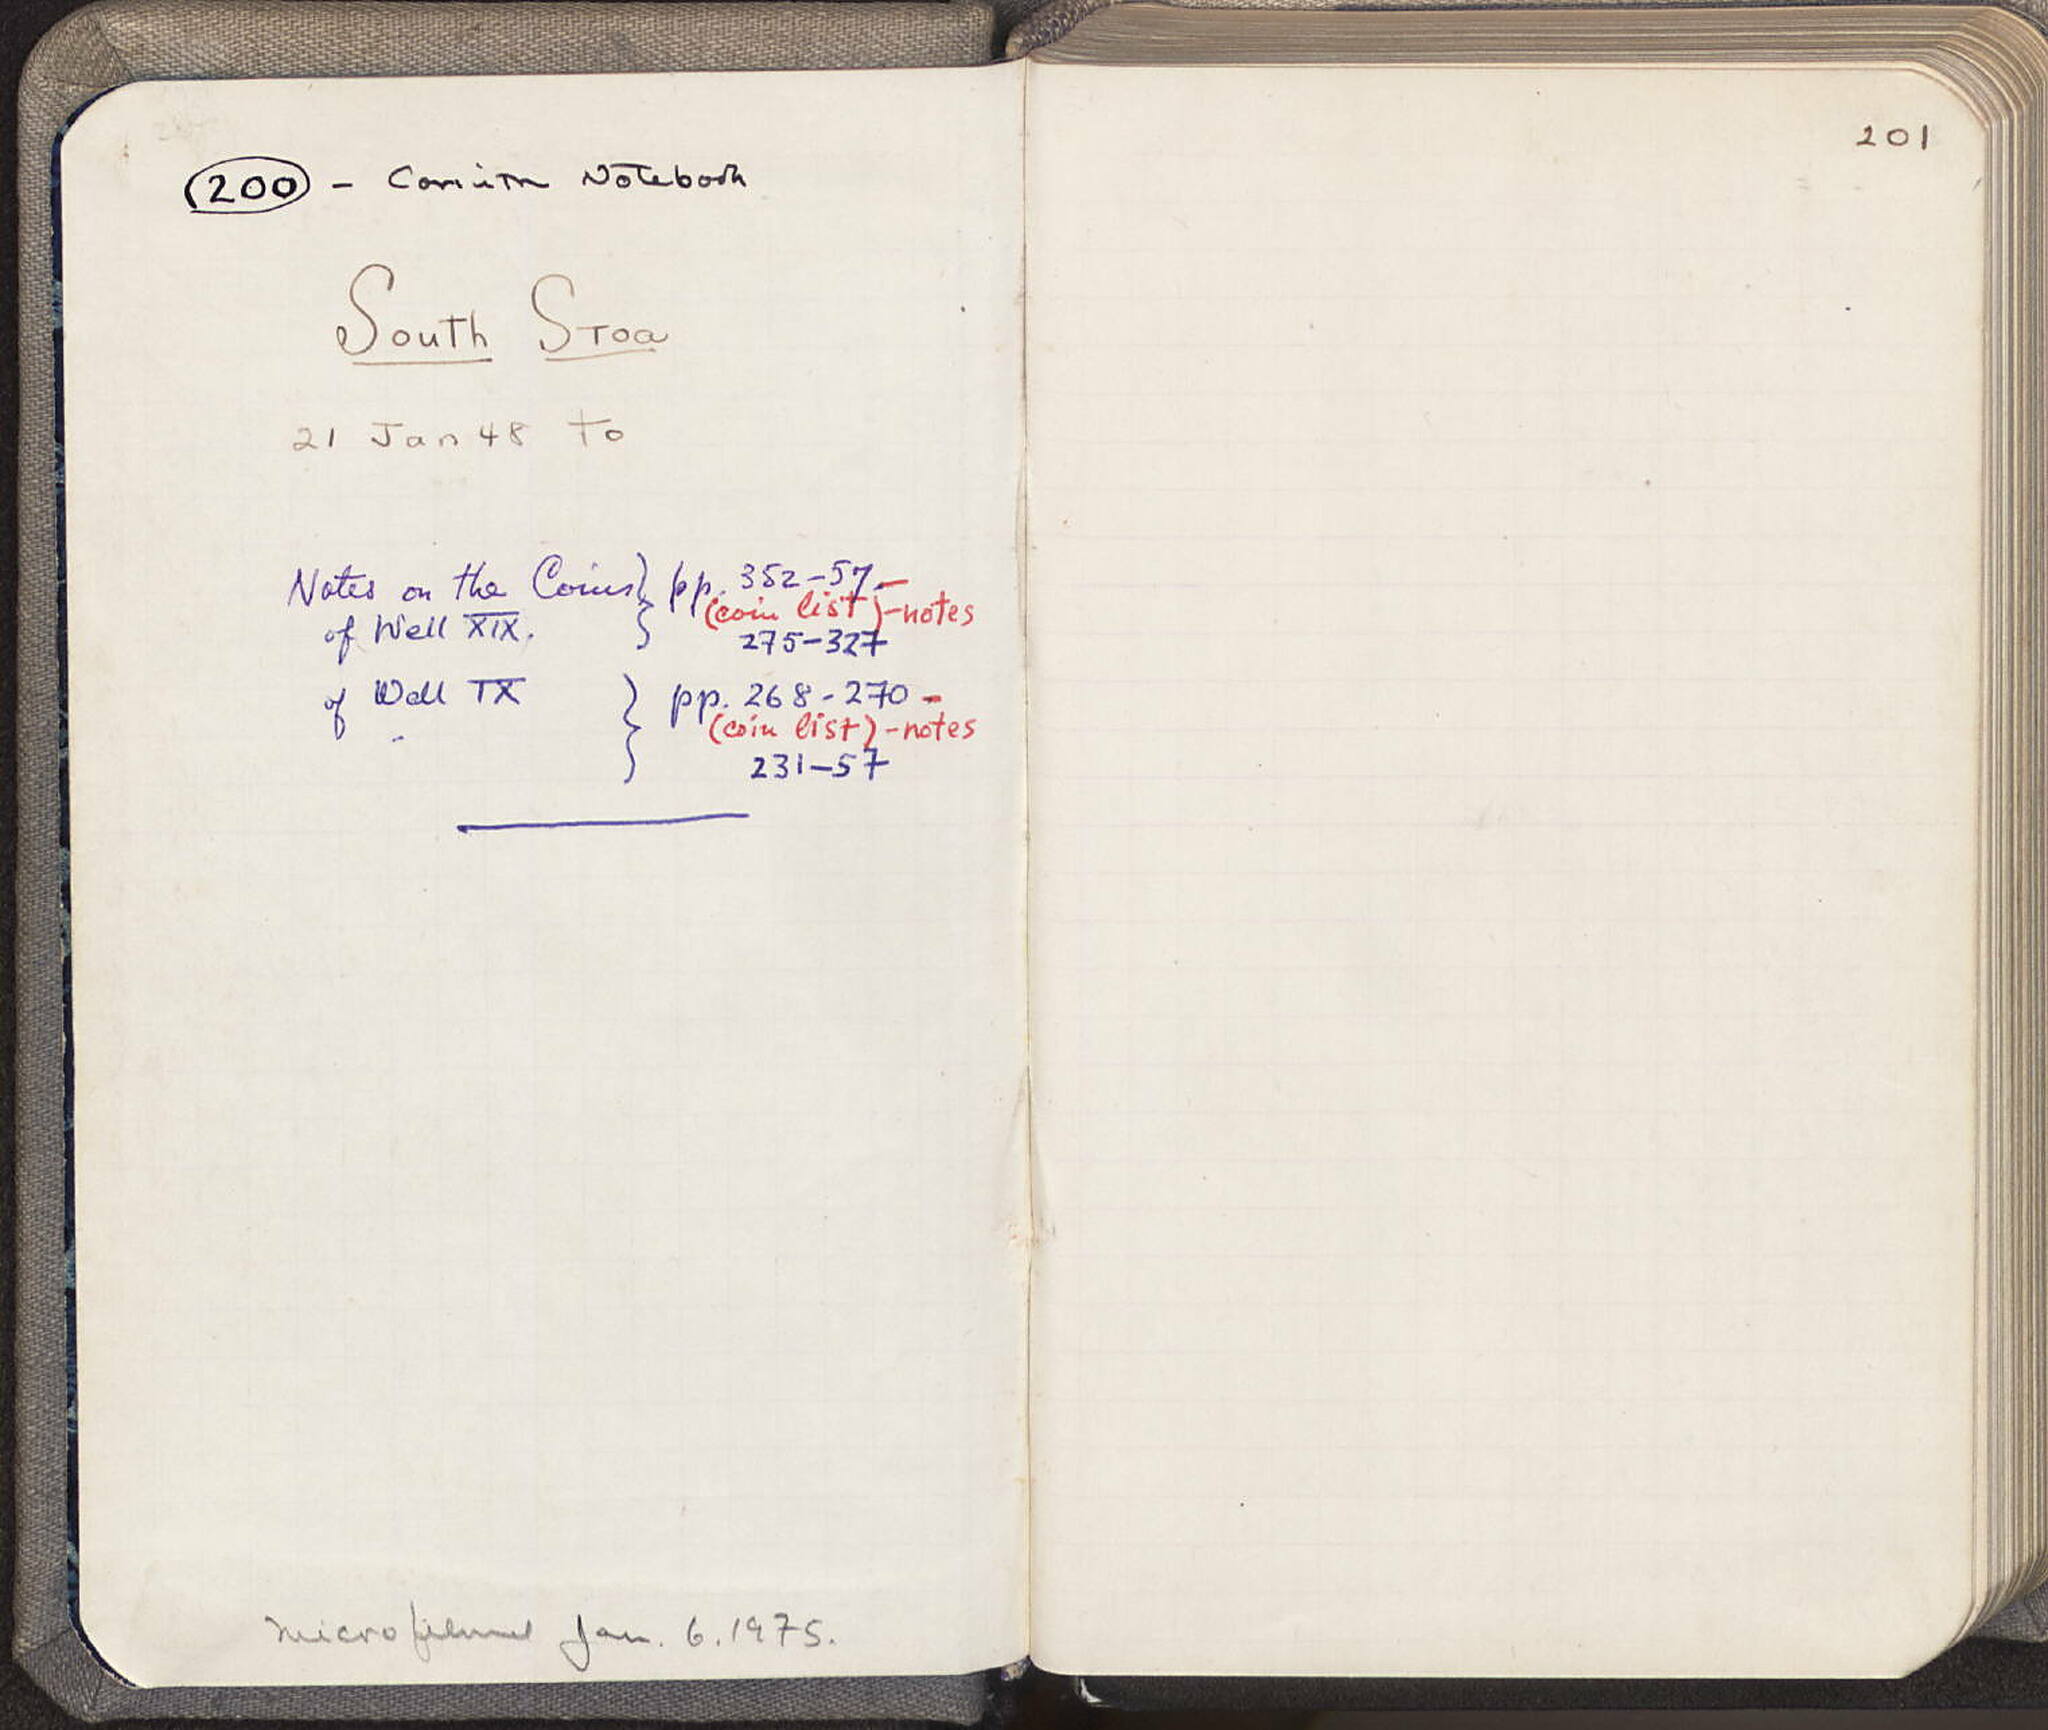 (200) – Corinth Notebook
South Stoa
21 Jan 48 To
Notes on the Coins } pp. 352–57 –
(coin list) – notes
of Well XIX. 275–327
of Well IX } pp. 268-270 –
(coin list) – notes
231–57
microfilmed Jan. 6. 1975.
201